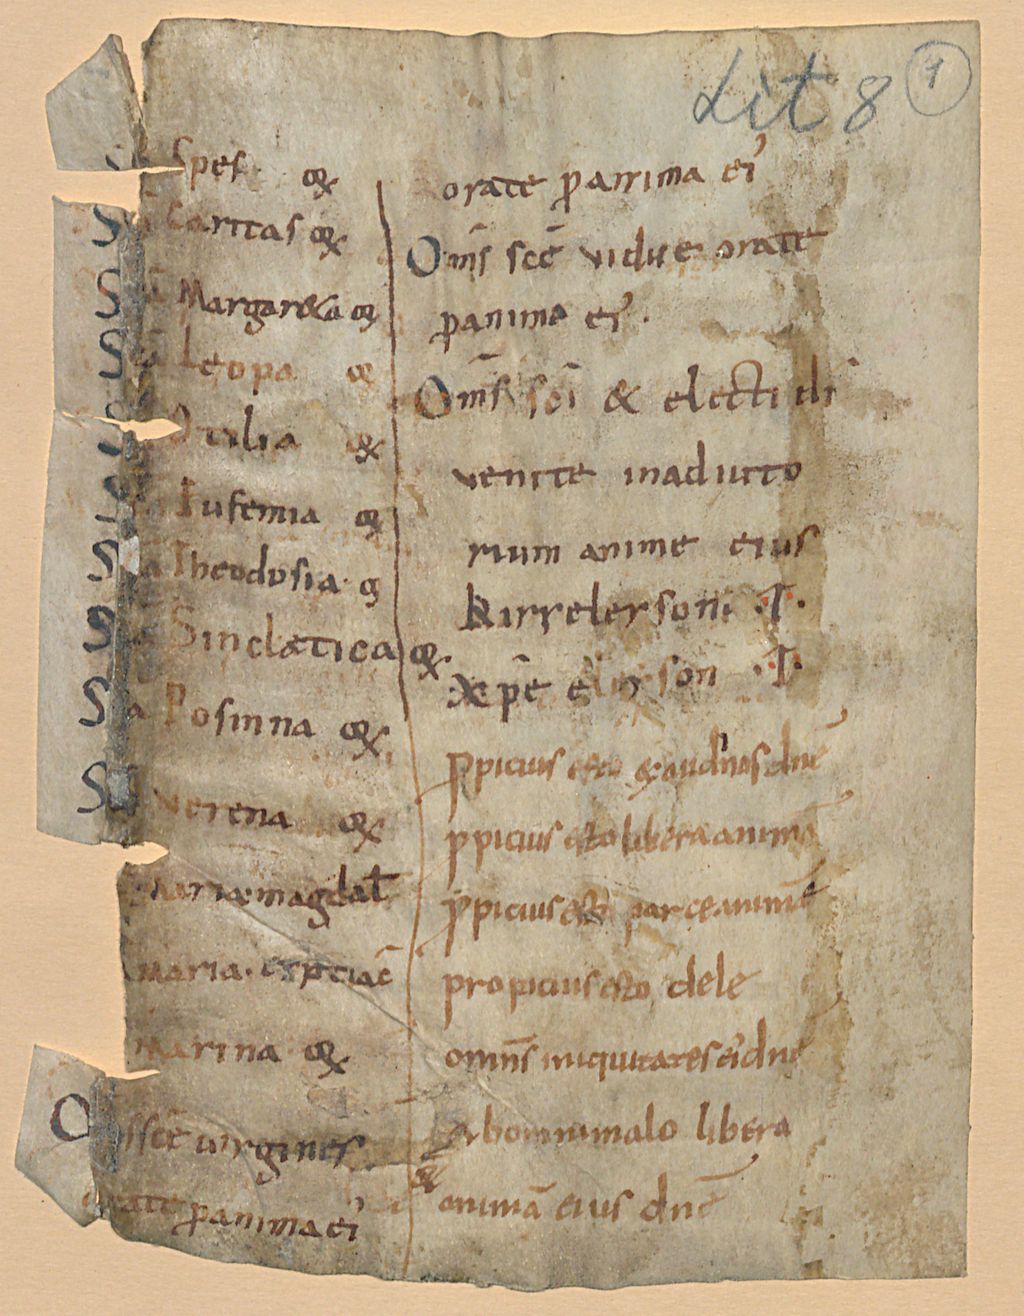 Lit 8 1
Sca Spes oꝝ
Sca caritas oꝝ
Sca Margar&a oꝝ
Sca Leopa oꝝ
Sca Otilia oꝝ
Sca Eufemia oꝝ
Sca Theodosia oꝝ
Sca Sincletica oꝝ
Sca Posinna oꝝ
Sca verena oꝝ
Maria magdaƚ
maria egiptiac̄
Marina oꝝ
O scē virgines
orate ꝓ anima ei᾽
orate ꝓ anima ei᾽
Om̄s scē vidue orate
ꝓ anima ei᾽.
Om̄s sc̄i & electi dī
venite inadiuto
rium anime eius
Kirreleison ·I·
xp̄e eleison ·I·
ꝓpicius esto exaudi nos dn̄e
ꝓpicius esto libera animā
ꝓpicius esto parce anime
propicius esto dele
omn̄s iniquitates ei᾽ dn̄e
Ab omni malo libera
animā eius dn̄e